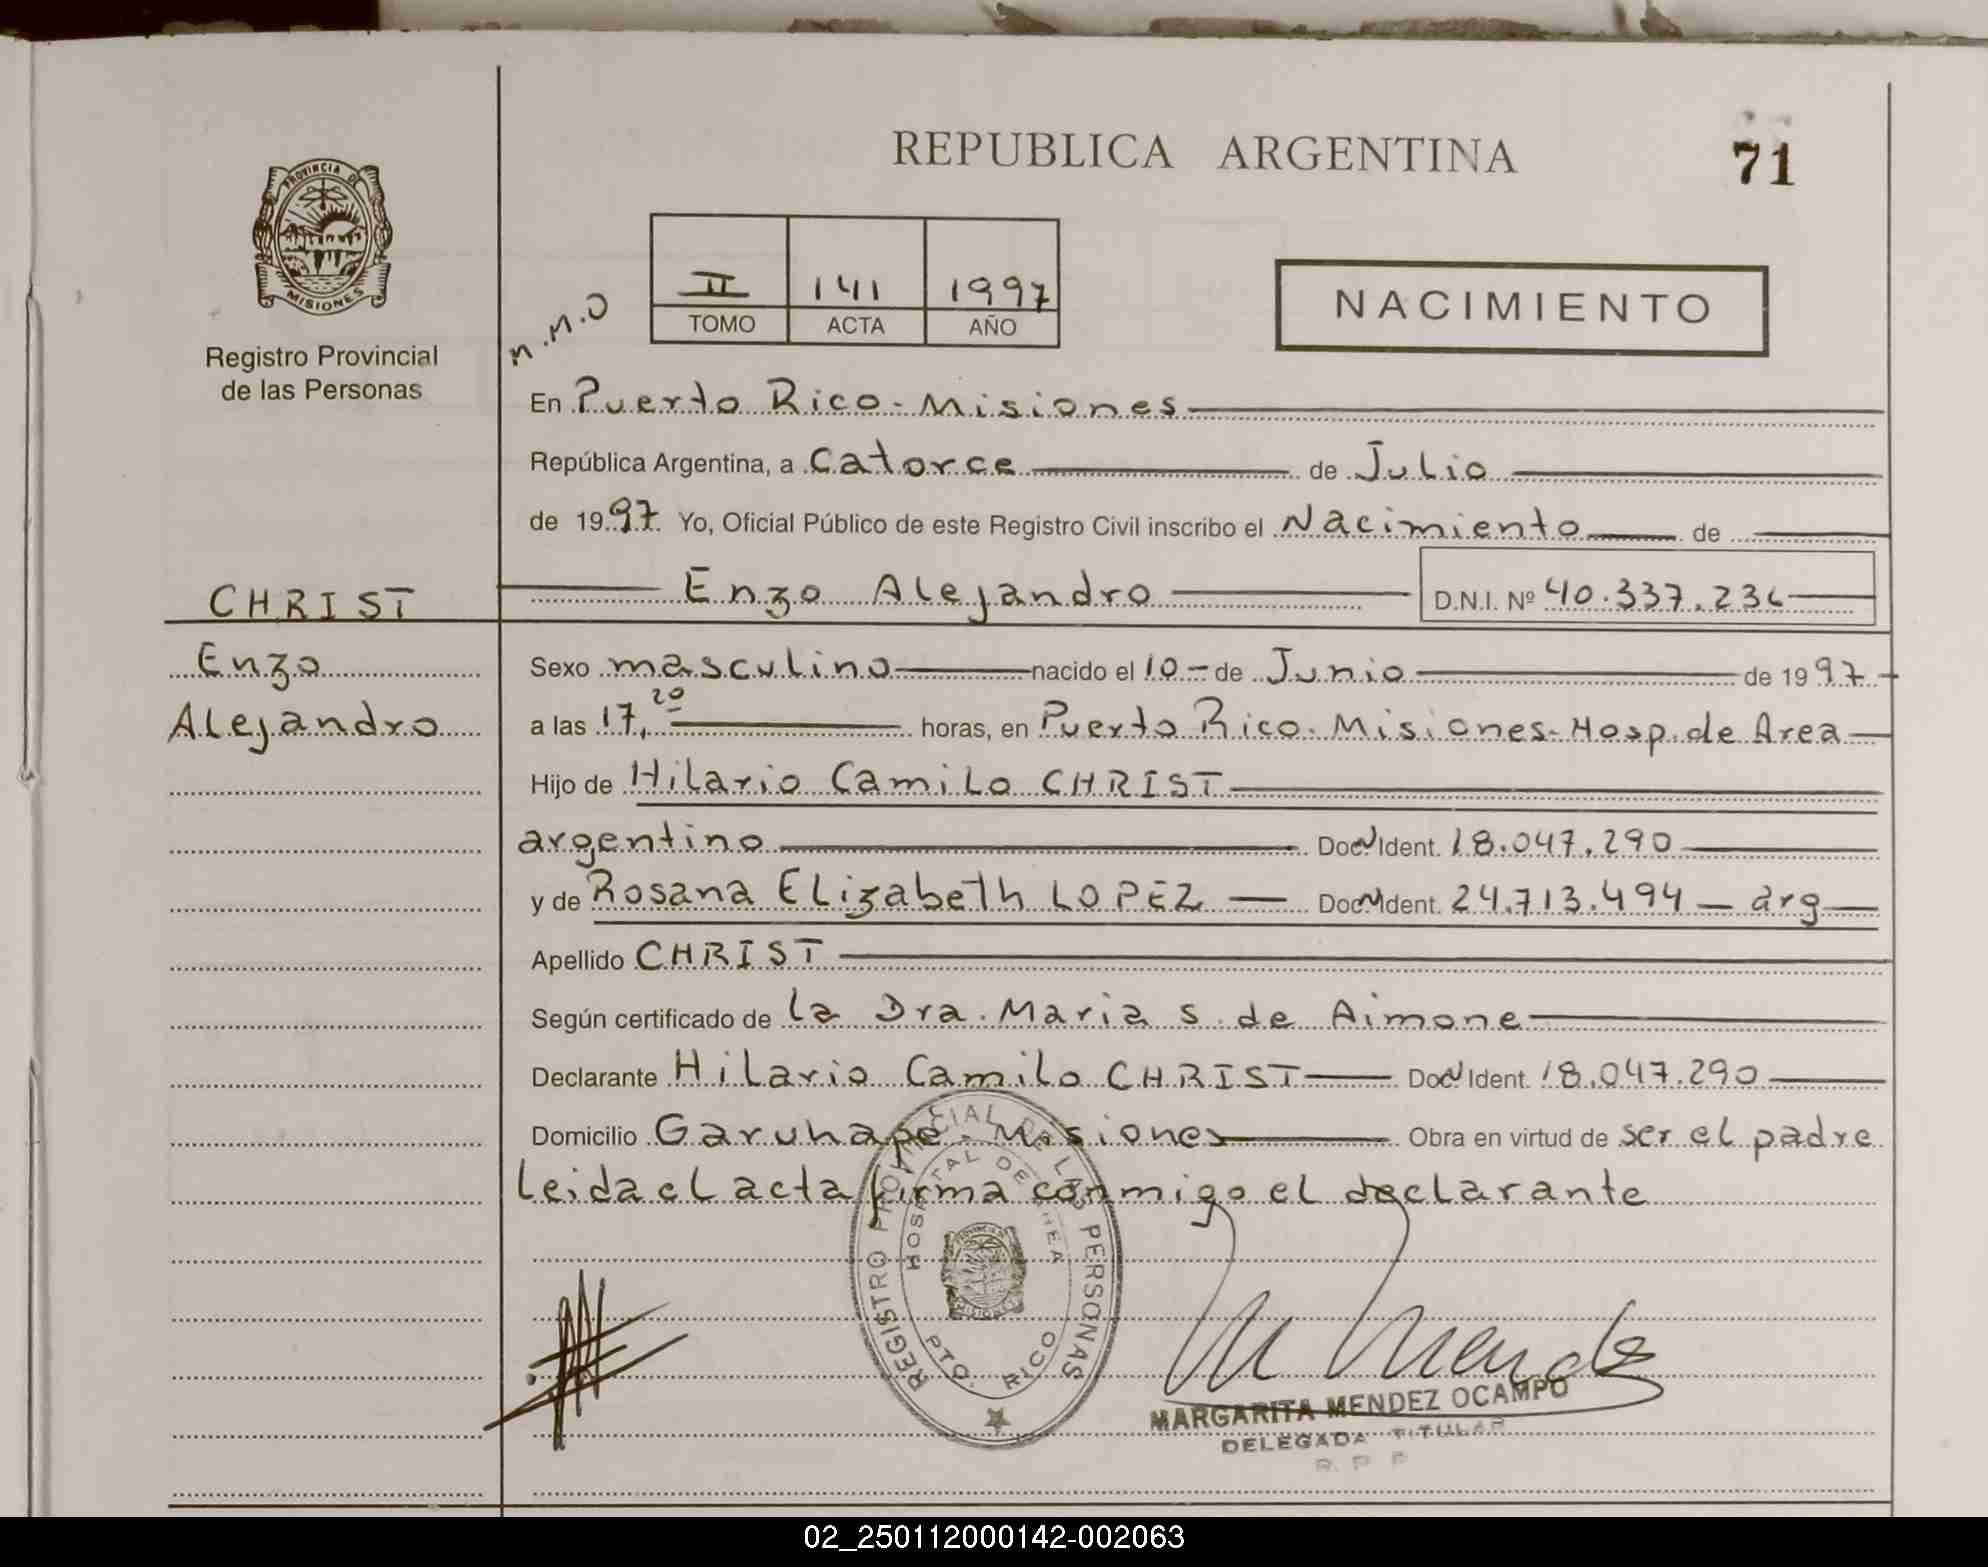 REPUBLICA ARGENTINA
71
PROVINCIA DE
MISIONES
Registro Provincial
de las Personas
II 141 1997
TOMO ACTA AÑO
NACIMIENTO
M.M.O
En Puerto Rico - Misiones
República Argentina, a Catorce de Julio
de 1997 Yo, Oficial Público de este Registro Civil inscribo el Nacimiento de
Enzo Alejandro D.N.I. Nº 40.337.236
CHRIST
Enzo
Alejandro
Sexo masculino nacido el 10 - de Junio de 1997
a las 17,20 horas, en Puerto Rico. Misiones - Hosp. de Area
Hijo de Hilario Camilo CHRIST
argentino Doc. Ident. 18.047.290
y de Rosana Elizabeth LOPEZ Doc. Ident. 24.713.494 - arg
Apellido CHRIST
Según certificado de la Dra. Maria S. de Aimone
Declarante Hilario Camilo CHRIST Doc. Ident. 18.047.290
Domicilio Garuhape - Misiones Obra en virtud de ser el padre
leida el acta firma conmigo el declarante
REGISTRO PROVINCIAL DE LAS PERSONAS
HOSPITAL DE AREA
PTO. RICO
M Mendez
MARGARITA MENDEZ OCAMPO
DELEGADA TITULAR
R. P. P
02_250112000142-002063